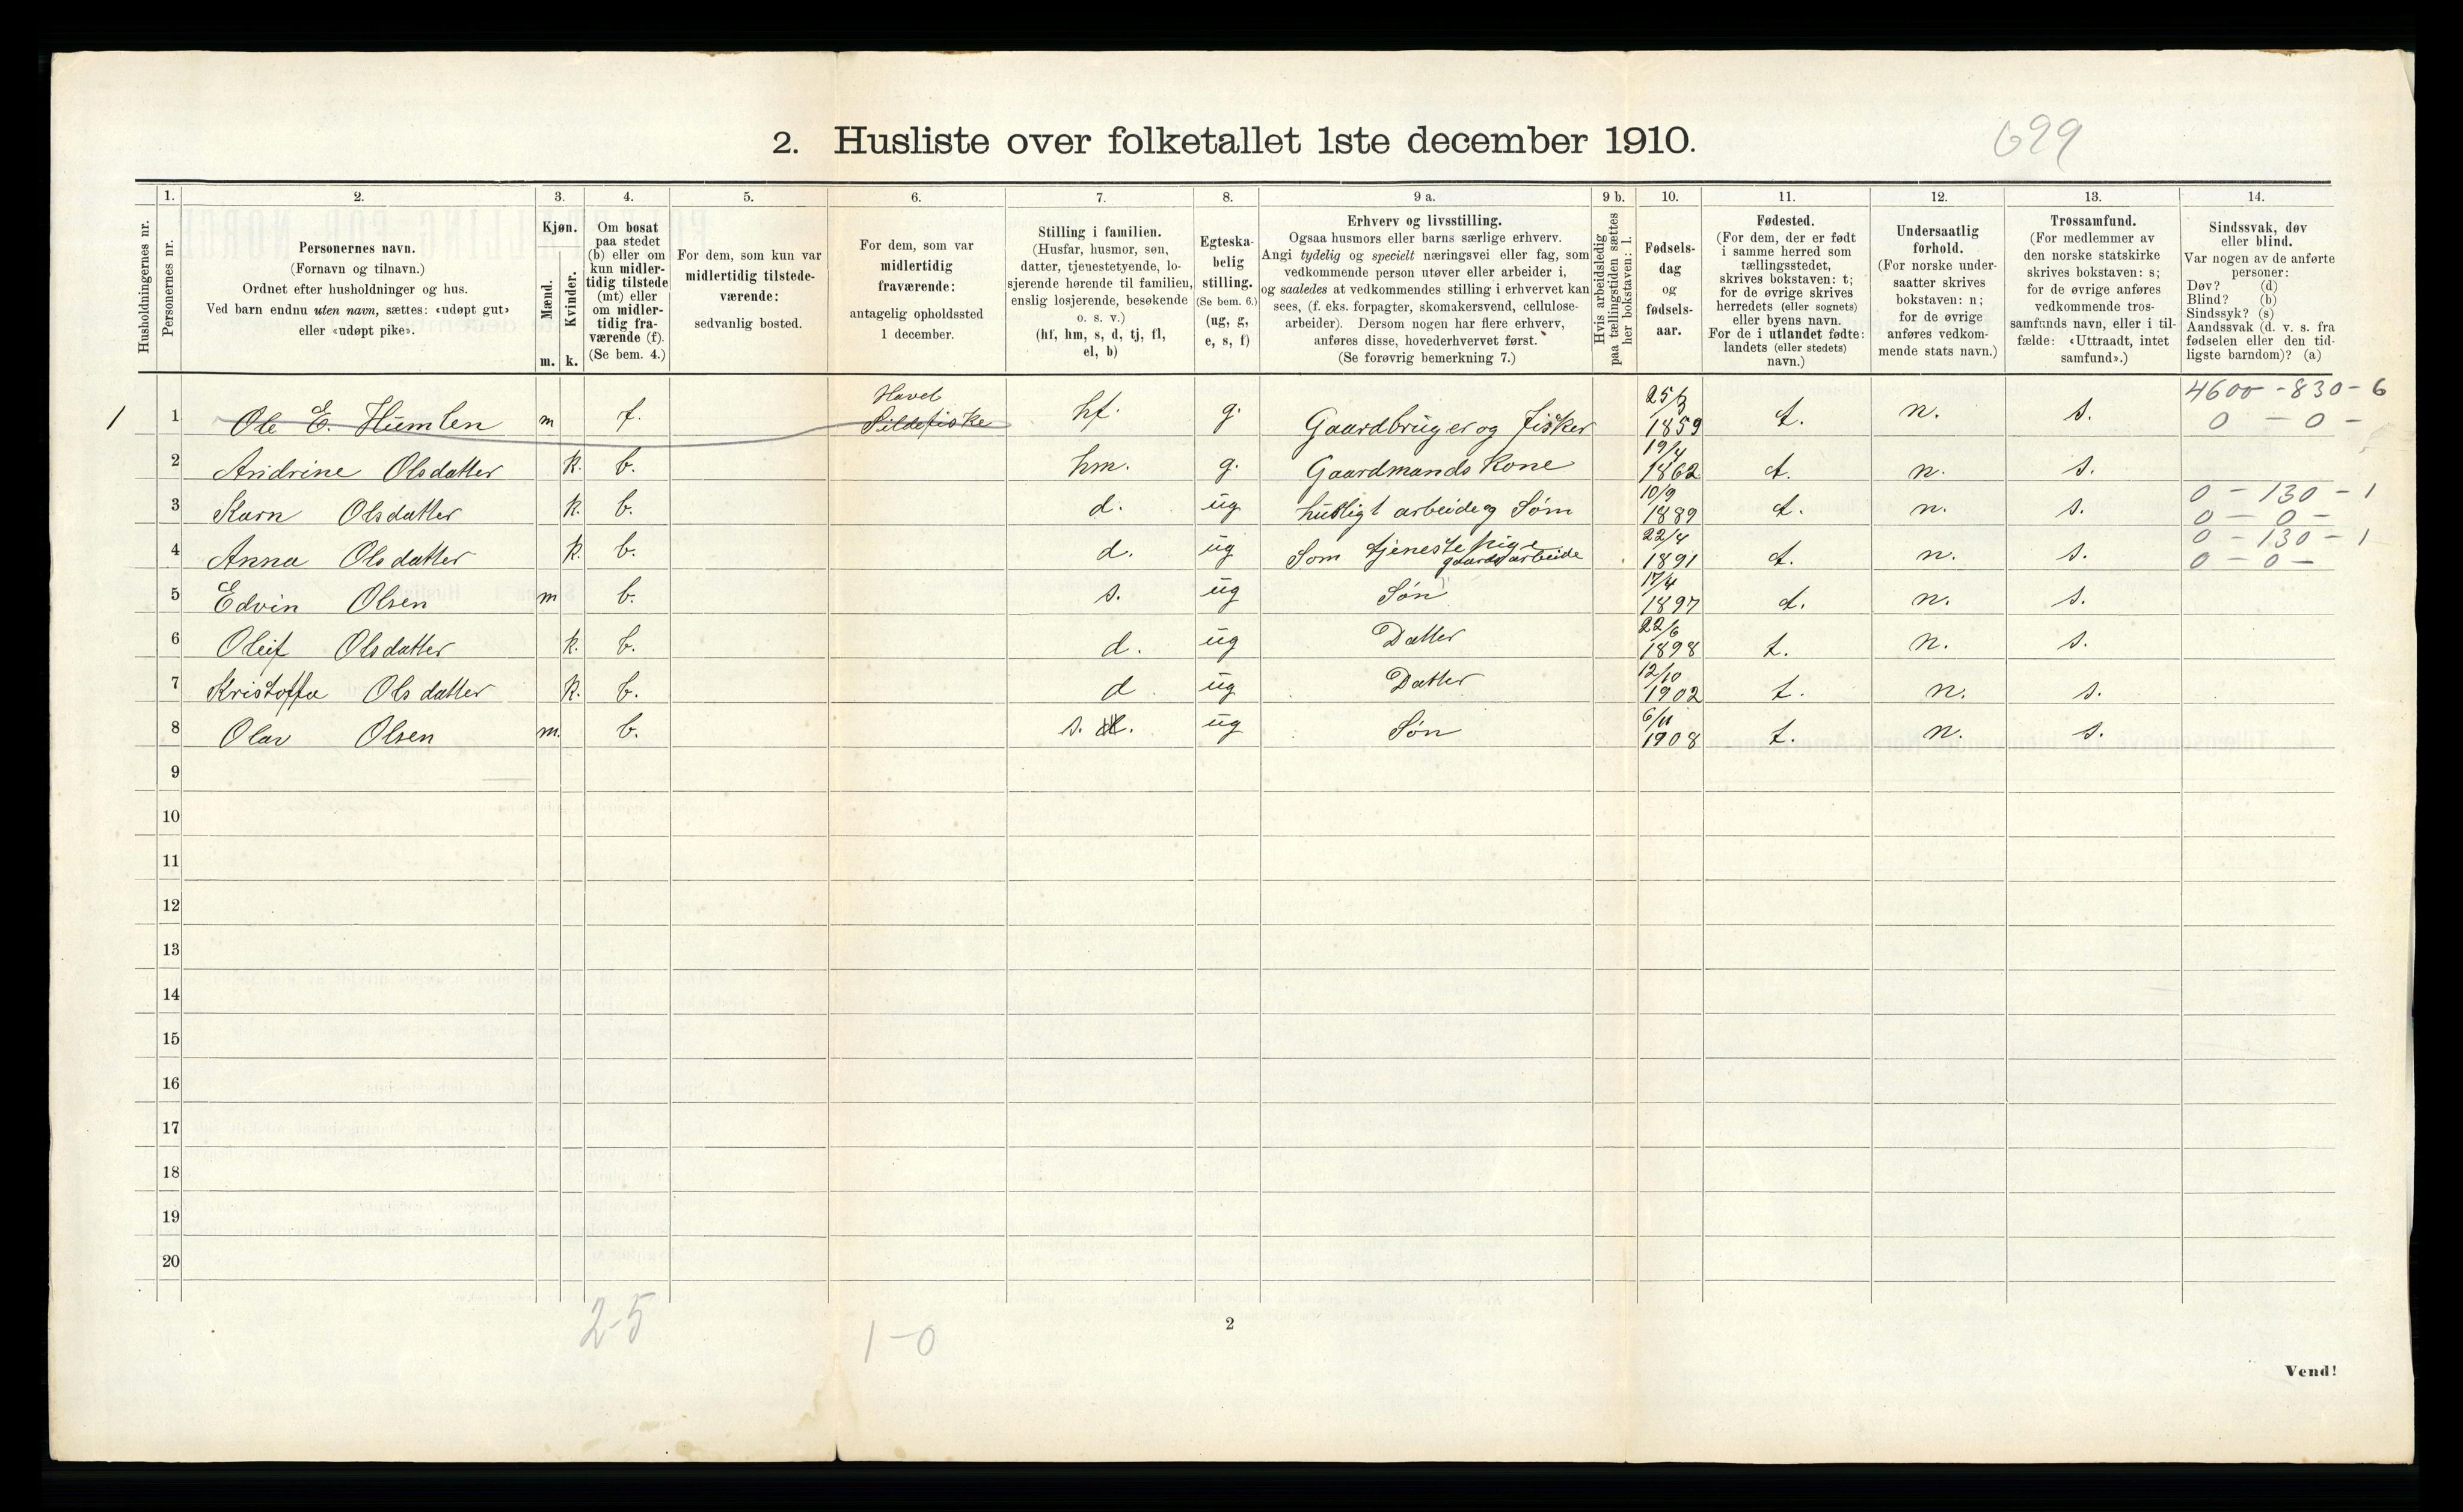 2. Husliste over folketallet 1ste december 1910.
699
1. 2. 3. 4. 5. 6. 7. 8. 9 a. 9 b. 10. 11. 12. 13. 14.
Husholdningernes nr.
Personernes nr.
Personernes navn.
(Fornavn og tilnavn.)
Ordnet efter husholdninger og hus.
Ved barn endnu uten navn, sættes: «udøpt gut»
eller «udøpt pike».
Kjøn.
Mænd.
Kvinder.
m. k.
Om bosat
paa stedet
(b) eller om
kun midler-
tidig tilstede
(mt) eller
om midler-
tidig fra-
værende (f).
(Se bem. 4.)
For dem, som kun var
midlertidig tilstede-
værende:
sedvanlig bosted.
For dem, som var
midlertidig
fraværende:
antagelig opholdssted
1 december.
Stilling i familien.
(Husfar, husmor, søn,
datter, tjenestetyende, lo-
sjerende hørende til familien,
enslig losjerende, besøkende
o. s. v.)
(hf, hm, s, d, tj, fl,
el, b)
Egteska-
belig
stilling.
(Se bem. 6.)
(ug, g,
e, s, f)
Erhverv og livsstilling.
Ogsaa husmors eller barns særlige erhverv.
Angi tydelig og specielt næringsvei eller fag, som
vedkommende person utøver eller arbeider i,
og saaledes at vedkommendes stilling i erhvervet kan
sees, (f. eks. forpagter, skomakersvend, cellulose-
arbeider). Dersom nogen har flere erhverv,
anføres disse, hovederhvervet først.
(Se forøvrig bemerkning 7.)
Hvis arbeidsledig
paa tællingstiden sættes
her bokstaven: l.
Fødsels-
dag
og
fødsels-
aar.
Fødested.
(For dem, der er født
i samme herred som
tællingsstedet,
skrives bokstaven: t;
for de øvrige skrives
herredets (eller sognets)
eller byens navn.
For de i utlandet fødte:
landets (eller stedets)
navn.)
Undersaatlig
forhold.
(For norske under-
saatter skrives
bokstaven: n;
for de øvrige
anføres vedkom-
mende stats navn.)
Trossamfund.
(For medlemmer av
den norske statskirke
skrives bokstaven: s;
for de øvrige anføres
vedkommende tros-
samfunds navn, eller i til-
fælde: «Uttraadt, intet
samfund».)
Sindssvak, døv
eller blind.
Var nogen av de anførte
personer:
Døv? (d)
Blind? (b)
Sindssyk? (s)
Aandssvak (d. v. s. fra
fødselen eller den tid-
ligste barndom)? (a)
Havet 25/3 4600 - 830 - 6
1 1 Ole E. Humlen m f. Sildefiske hf. g. Gaardbruger og fisker 1859 t. n. s. 0 - 0 -
19/4
2 Andrine Olsdatter k. b. hm. g. Gaardmands Kone 1862 t. n. s.
10/9 0 - 130 - 1
3 Karn Olsdatter k. b. d. ug husligt arbeide og Søm 1889 t. n. s. 0 - 0 -
22/4 0 - 130 - 1
4 Anna Olsdatter k. b. d. ug Som tjenestepige gaardsarbeide 1891 t. n. s. 0 - 0 -
17/4
5 Edvin Olsen m b. s. ug Søn 1897 t. n. s.
22/6
6 Oleif Olsdatter k. b. d. ug Datter 1898 t. n. s.
12/10
7 Kristoffa Olsdatter k. b. d ug Datter 1902 t. n. s.
6/11
8 Olav Olsen m. b. s. ug Søn 1908 t. n. s.
9
10
11
12
13
14
15
16
17
18
19
20
2-5
1-0
2
Vend!